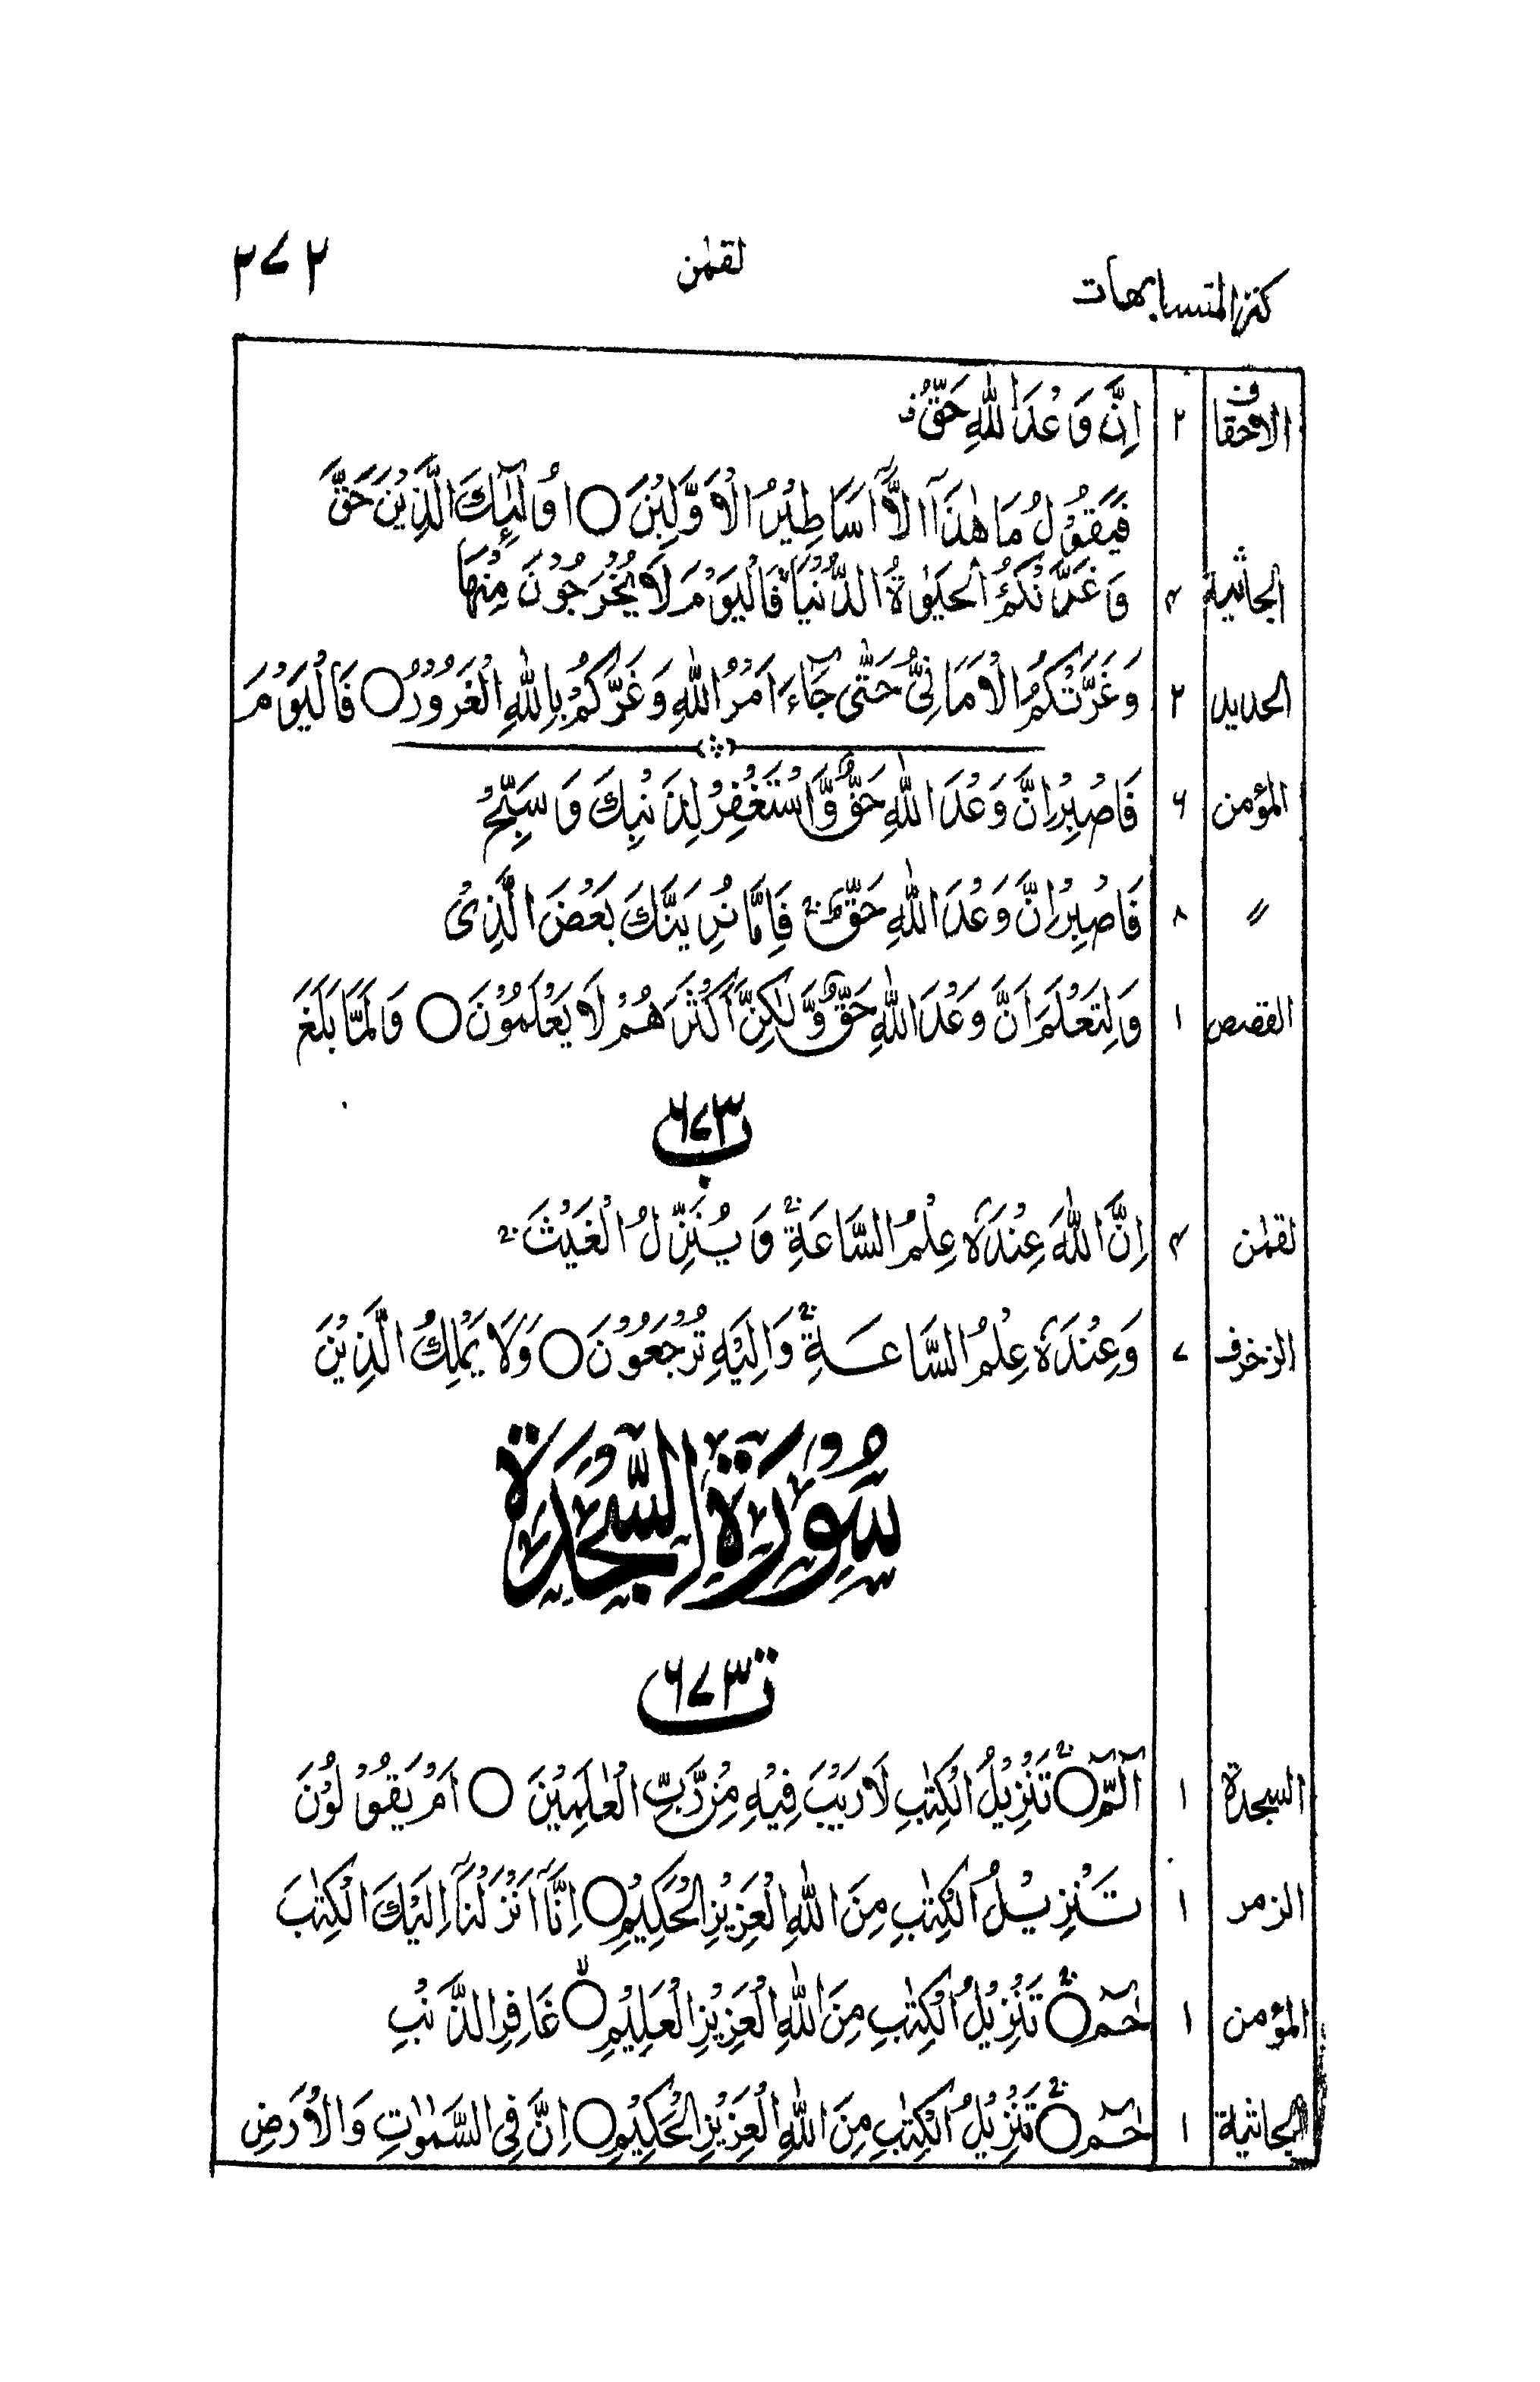 كنز المتشابهات لقمٰن ٢٧٢
الاحقاف ٢ اِنَّ وَعْدَ اللّٰهِ حَقٌّ
فَيَقُوْلُ مَا هٰذَآ اِلَّآ اَسَاطِيْرُ الْاَوَّلِيْنَ ○ اُولٰٓئِكَ الَّذِيْنَ حَقَّ
الجاثية ۴ وَغَرَّتْكُمُ الْحَيٰوةُ الدُّنْيَا فَالْيَوْمَ لَا يُخْرَجُوْنَ مِنْهَا
الحديد ٢ وَغَرَّتْكُمُ الْاَمَانِيُّ حَتّٰى جَآءَ اَمْرُ اللّٰهِ وَغَرَّكُمْ بِاللّٰهِ الْغَرُوْرُ ○ فَالْيَوْمَ
المؤمن ۶ فَاصْبِرْ اِنَّ وَعْدَ اللّٰهِ حَقٌّ وَّاسْتَغْفِرْ لِذَنْبِكَ وَسَبِّحْ
〃 ٨ فَاصْبِرْ اِنَّ وَعْدَ اللّٰهِ حَقٌّ ۚ فَاِمَّا نُرِيَنَّكَ بَعْضَ الَّذِيْ
القصص ١ وَلِتَعْلَمَ اَنَّ وَعْدَ اللّٰهِ حَقٌّ وَّلٰكِنَّ اَكْثَرَهُمْ لَا يَعْلَمُوْنَ ○ وَلَمَّا بَلَغَ
ب ۶۷۳
لقمٰن ۴ اِنَّ اللّٰهَ عِنْدَهٗ عِلْمُ السَّاعَةِ ۚ وَيُنَزِّلُ الْغَيْثَ ۚ
الزخرف ۷ وَعِنْدَهٗ عِلْمُ السَّاعَةِ ۚ وَاِلَيْهِ تُرْجَعُوْنَ ○ وَلَا يَمْلِكُ الَّذِيْنَ
سُوْرَةُ السَّجْدَةِ
ت ۶۷۳
السجدة ١ الٓمّٓ ○ ۚ تَنْزِيْلُ الْكِتٰبِ لَا رَيْبَ فِيْهِ مِنْ رَّبِّ الْعٰلَمِيْنَ ○ اَمْ يَقُوْلُوْنَ
الزمر ١ تَنْزِيْلُ الْكِتٰبِ مِنَ اللّٰهِ الْعَزِيْزِ الْحَكِيْمِ ○ اِنَّآ اَنْزَلْنَآ اِلَيْكَ الْكِتٰبَ
المؤمن ١ حٰمٓ ○ ۚ تَنْزِيْلُ الْكِتٰبِ مِنَ اللّٰهِ الْعَزِيْزِ الْعَلِيْمِ ○ ۙ غَافِرِ الذَّنْبِ
الجاثية ١ حٰمٓ ○ ۚ تَنْزِيْلُ الْكِتٰبِ مِنَ اللّٰهِ الْعَزِيْزِ الْحَكِيْمِ ○ اِنَّ فِى السَّمٰوٰتِ وَالْاَرْضِ